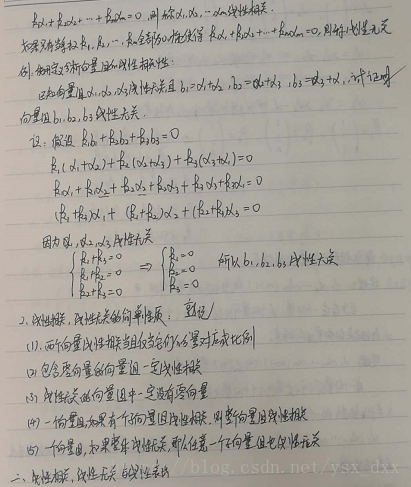 k₁α₁+k₂α₂+…+kₘαₘ=0,则称α₁,α₂,…αₘ线性相关.
k₁,k₂,…,kₘ全部为0才能使得 k₁α₁+k₂α₂+…+kₘαₘ=0,则称线性无关
例:
已知向量组α₁,α₂,α₃线性无关且b₁=α₁+α₂,b₂=α₂+α₃,b₃=α₃+α₁,试证明
向量组b₁,b₂,b₃线性无关.
设:假设 k₁b₁+k₂b₂+k₃b₃=0
k₁(α₁+α₂)+k₂(α₂+α₃)+k₃(α₃+α₁)=0
k₁α₁+k₁α₂+k₂α₂+k₂α₃+k₃α₃+k₃α₁=0
(k₁+k₃)α₁+(k₁+k₂)α₂+(k₂+k₃)α₃=0
因为α₁,α₂,α₃线性无关
{ k₁+k₃=0 ⇒ { k₁=0 所以b₁,b₂,b₃线性无关
k₁+k₂=0 k₂=0
k₂+k₃=0 k₃=0
2.线性相关,线性无关的简单性质:
(1).两个向量线性相关当且仅当它们的分量对应成比例
(2)包含零向量的向量组一定线性相关
(3)线性无关的向量组中一定没有零向量
(4)一向量组如果有个子向量组线性相关,则整向量组线性相关
(5)一个向量组,如果整体线性无关,那么任意一个子向量组也线性无关
二、线性相关,线性无关与线性表出
blog.csdn.net/ysx_dxx